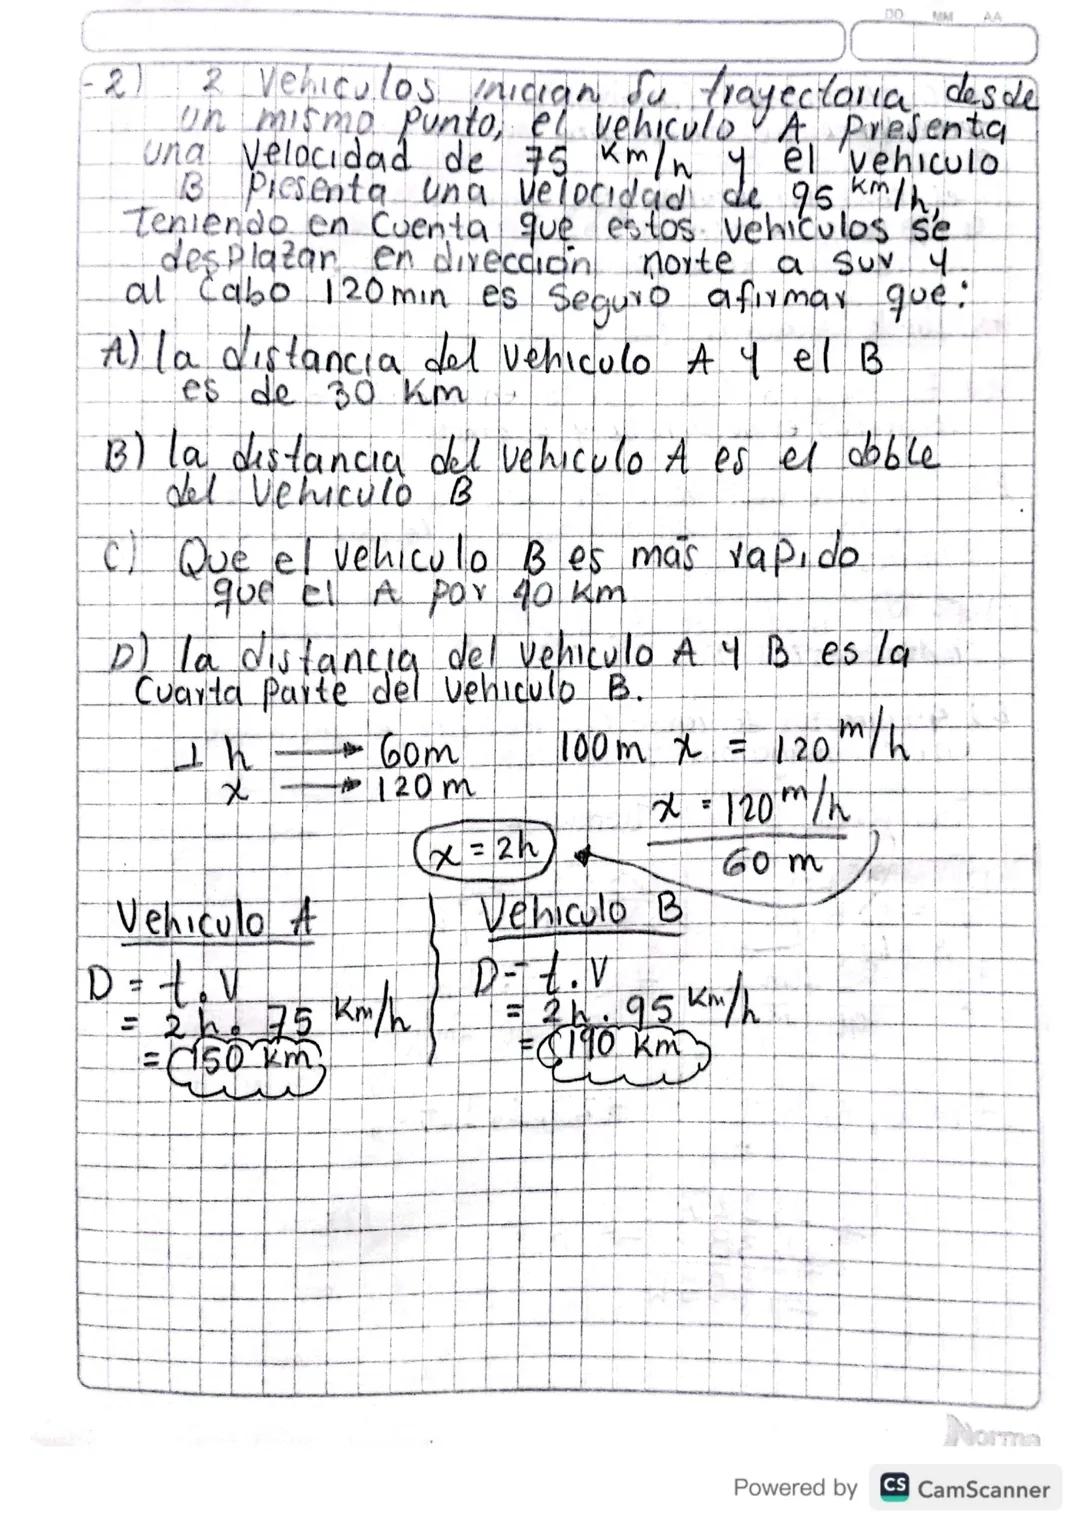 DD MM AA
-2) 2 Vehiculos inician su trayectoria desde
un mismo punto, el vehiculo A Presenta
una velocidad de 75 Km/h y el vehiculo
B Presenta una velocidad de 95 km/h,
Teniendo en Cuenta que estos vehiculos se
desplazan en dirección norte a sur y
al cabo 120 min es seguro afirmar que:
A) la distancia del vehiculo A y el B
es de 30 Km
B) la distancia del vehiculo A es el doble
del vehiculo B
C) Que el vehiculo B es más rapido
que el A por 40 km
D) la distancia del vehiculo A y B es la
Cuarta parte del vehiculo B.
1 h → 60m 100m x = 120 m/h
x → 120 m
x = 120 m/h
60 m
x = 2h
Vehiculo A Vehiculo B
D = t.V D = t.V
= 2h. 75 Km/h = 2h. 95 Km/h
= 150 km = 190 km
Norma
Powered by CS CamScanner